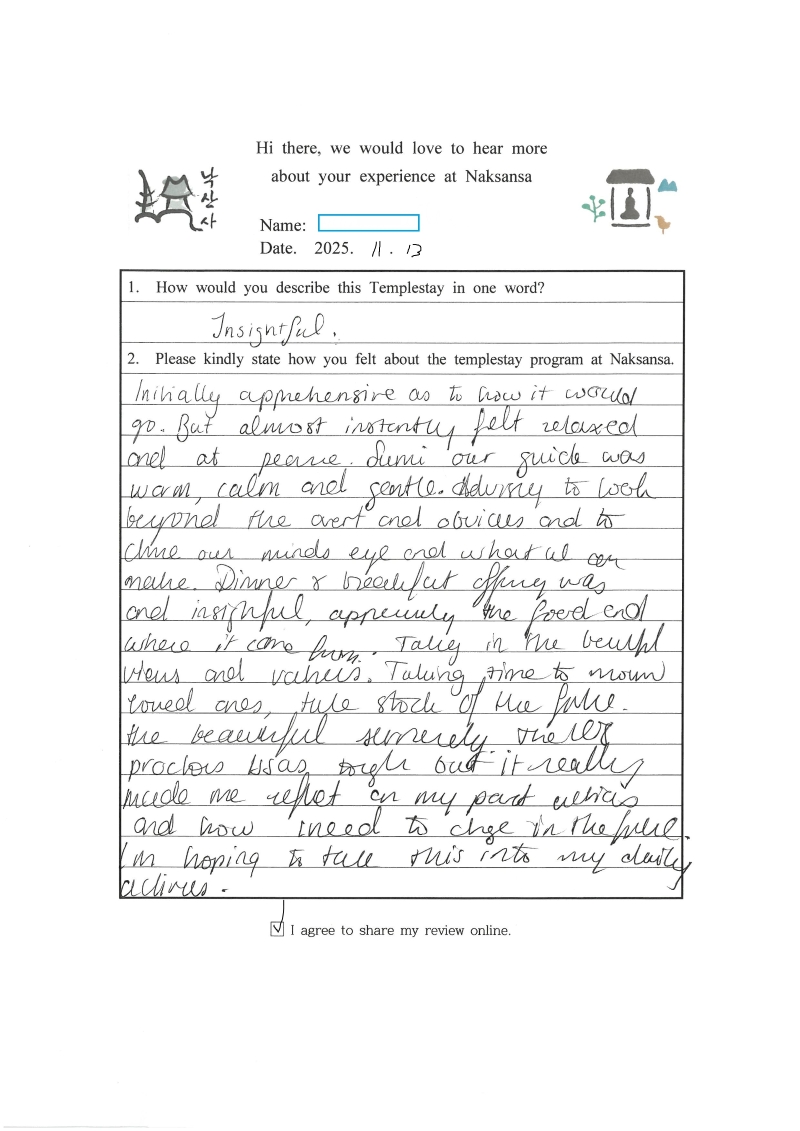 Hi there, we would love to hear more
about your experience at Naksansa
낙
산
사
Name:
Date. 2025. 11 . 13
1. How would you describe this Templestay in one word?
Insightful.
2. Please kindly state how you felt about the templestay program at Naksansa.
Initially apprehensive as to how it would
go. But almost instantly felt relaxed
and at peace. Sumi our guide was
warm, calm and gentle. to look
beyond the overt and obvious and to
our minds eye and what we can
make. Dinner & breakfast offering was
and insightful, the food and
where it came from. Taking in the beautiful
views and . Taking time to mourn
loved ones, take stock of the future.
the beautiful
was tough but it really
made me reflect on my past actions
and how i need to change in the future.
I'm hoping to take this into my daily
activities.
I agree to share my review online.